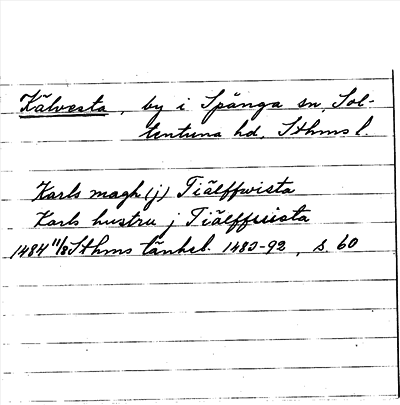 Kälvesta, by i Spånga sn, Sol-
lentuna hd, Sthms l.
Karls magh (j) Tiälffwista
Karls hustru j Tiälffwista
1484 11/8 Sthms tänkeb. 1483-92, s. 60